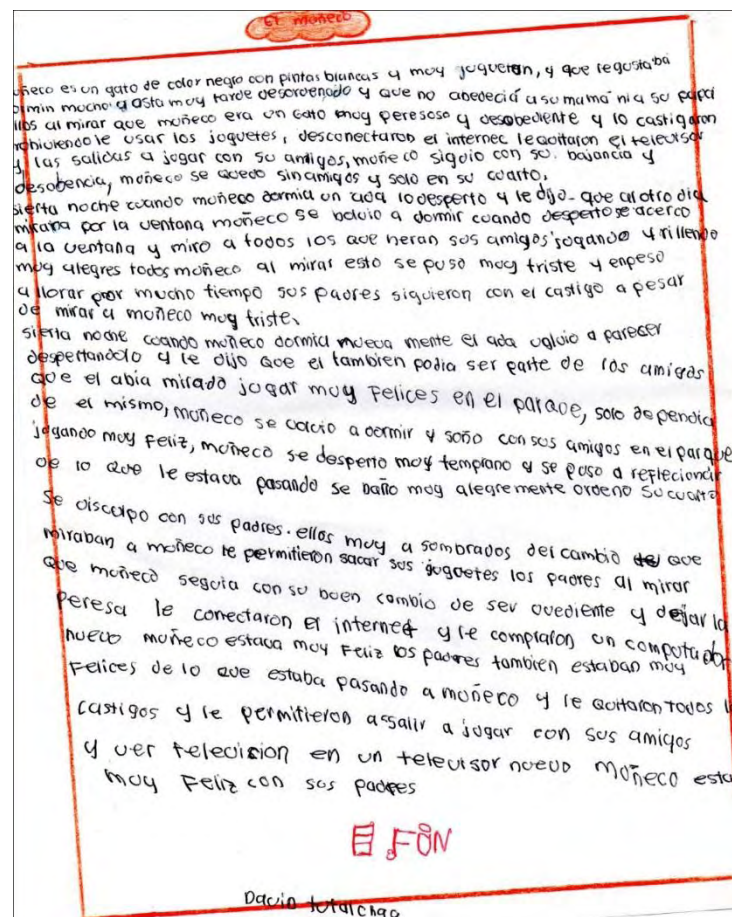 El moñeco
uñeco es un gato de color negro con pintas blancas y muy jugueton, y que le gustaba
ormin mucho y asta muy tarde desordenado y que no abedecia a su mamá ni a su papá
llos al mirar que moñeco era un gato muy peresoso y desobediente y lo castigaron
rohiviendole usar los juguetes, desconectaron el internec le quitaron el televisor
y las salidas a jugar con su amigos, moñeco siguio con su bajancia y
desobencia, moñeco se quedo sin amigos y solo en su cuarto,
sierta noche cuando moñeco dormia un ada lo desperto y le dijo- que al otro dia
miraria por la ventana moñeco se bolvio a dormir cuando desperto se acerco
a la ventana y miro a todos los que heran sus amigos jugando y rillendo
muy alegres todos moñeco al mirar esto se puso muy triste y enpeso
a llorar por mucho tiempo sus padres siguieron con el castigo a pesar
de mirar a moñeco muy triste.
sierta noche cuando moñeco dormia mueva mente el ada volvio a parecer
despertandolo y le dijo que el tambien podia ser parte de los amigos
que el abia mirado jugar muy Felices en el parque, solo dependia
de el mismo, moñeco se volvio a dormir y soño con sus amigos en el parque
jugando muy Feliz, moñeco se desperto muy temprano y se puso a reflecionar
de lo que le estava pasando se baño muy alegremente ordeno su cuarto
se disculpo con sus padres. ellos muy a sombrados del cambio que
miraban a moñeco le permitieron sacar sus juguetes los padres al mirar
que moñeco seguia con su buen cambio de ser ovediente y dejar la
peresa le conectaron el internet y le compraron un computador
nuevo moñeco estava muy Feliz los padres tambien estaban muy
Felices de lo que estaba pasando a moñeco y le quitaron todos l
castigos y le permitieron assalir a jugar con sus amigos
y ver television en un televisor nuevo moñeco esta
muy Feliz con sus padres
El FIN
David